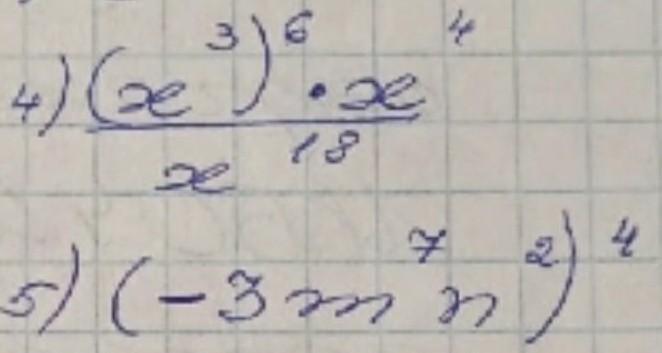 4) (x³)⁶ · x⁴
x¹⁸
5) (-3m⁷n²)⁴